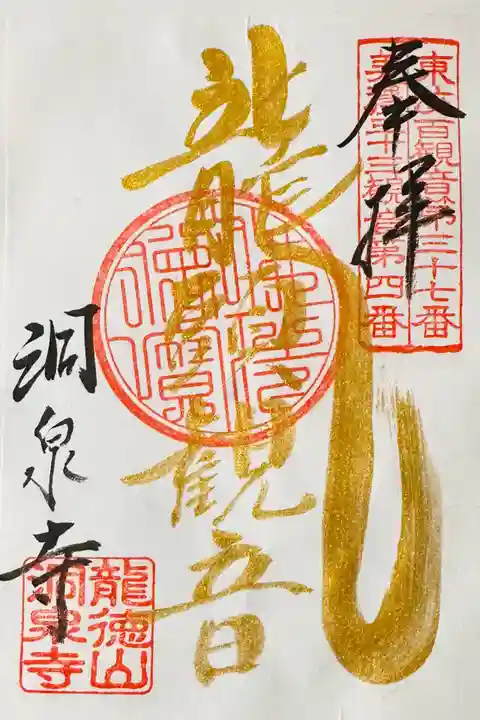 東海百観音第三十七番
美濃三十三観音第四番
奉拝
龍頭観音
洞泉寺
龍徳山
洞泉寺